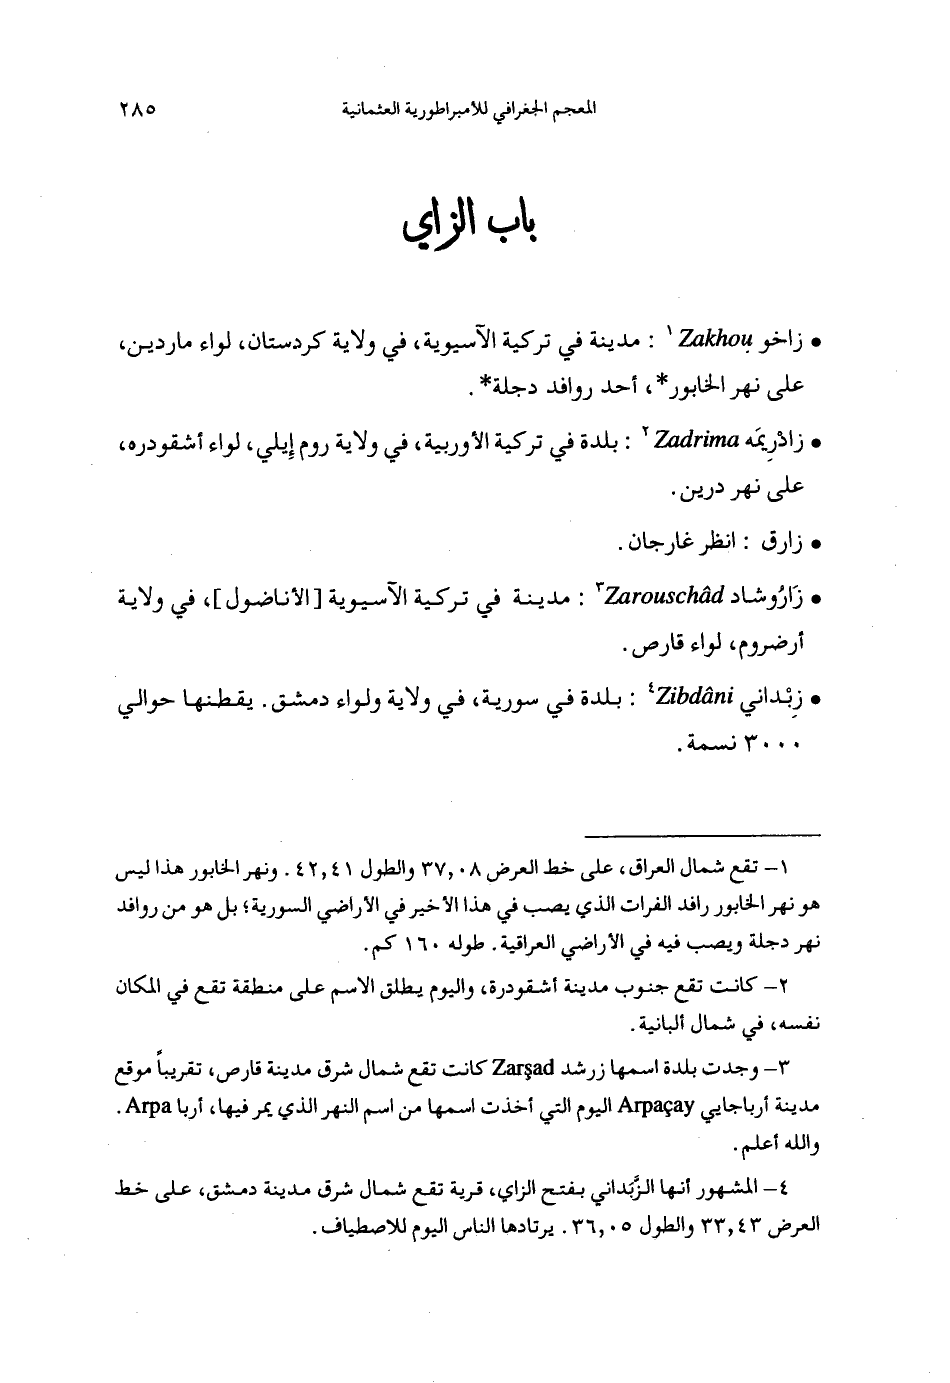 المعجم الجغرافي للامبراطورية العثمانية ٢٨٥
باب الزاي
• زاخو Zakhou ١ : مدينة في تركية الآسيوية، في ولاية كردستان، لواء ماردين،
على نهر الخابور*، أحد روافد دجلة* .
• زادْرِيمَه Zadrima ٢ : بلدة في تركية الأوربية، في ولاية روم إيلي، لواء أشقودره،
على نهر درين.
• زارق : انظر غارجان .
• زَارُوشاد Zarouschâd ٣ : مدينة في تركية الآسيوية [الأناضول]، في ولاية
أرضروم، لواء قارص.
• زِبْداني Zibdâni ٤ : بلدة في سورية، في ولاية ولواء دمشق. يقطنها حوالي
٣٠٠٠ نسمة.
١– تقع شمال العراق، على خط العرض ٣٧,٠٨ والطول ٤٢,٤١ . ونهر الخابور هذا ليس
هو نهر الخابور رافد الفرات الذي يصب في هذا الأخير في الأراضي السورية؛ بل هو من روافد
نهر دجلة ويصب فيه في الأراضي العراقية. طوله ١٦٠ كم.
٢– كانت تقع جنوب مدينة أشقودرة، واليوم يطلق الاسم على منطقة تقع في المكان
نفسه، في شمال ألبانية.
٣– وجدت بلدة اسمها زرشد Zarşad كانت تقع شمال شرق مدينة قارص، تقريباً موقع
مدينة أرباجايي Arpaçay اليوم التي أخذت اسمها من اسم النهر الذي يمر فيها، أربا Arpa .
والله أعلم.
٤– المشهور أنها الزَّبَداني بفتح الزاي، قرية تقع شمال شرق مدينة دمشق، على خط
العرض ٣٣,٤٣ والطول ٣٦,٠٥ . يرتادها الناس اليوم للاصطياف.